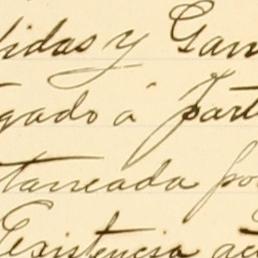 didas y Gan
gado á part
tarreada po
Existencia que